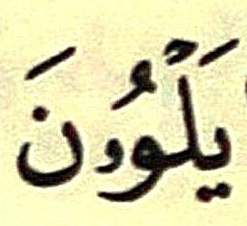 يَلْوُۥنَ